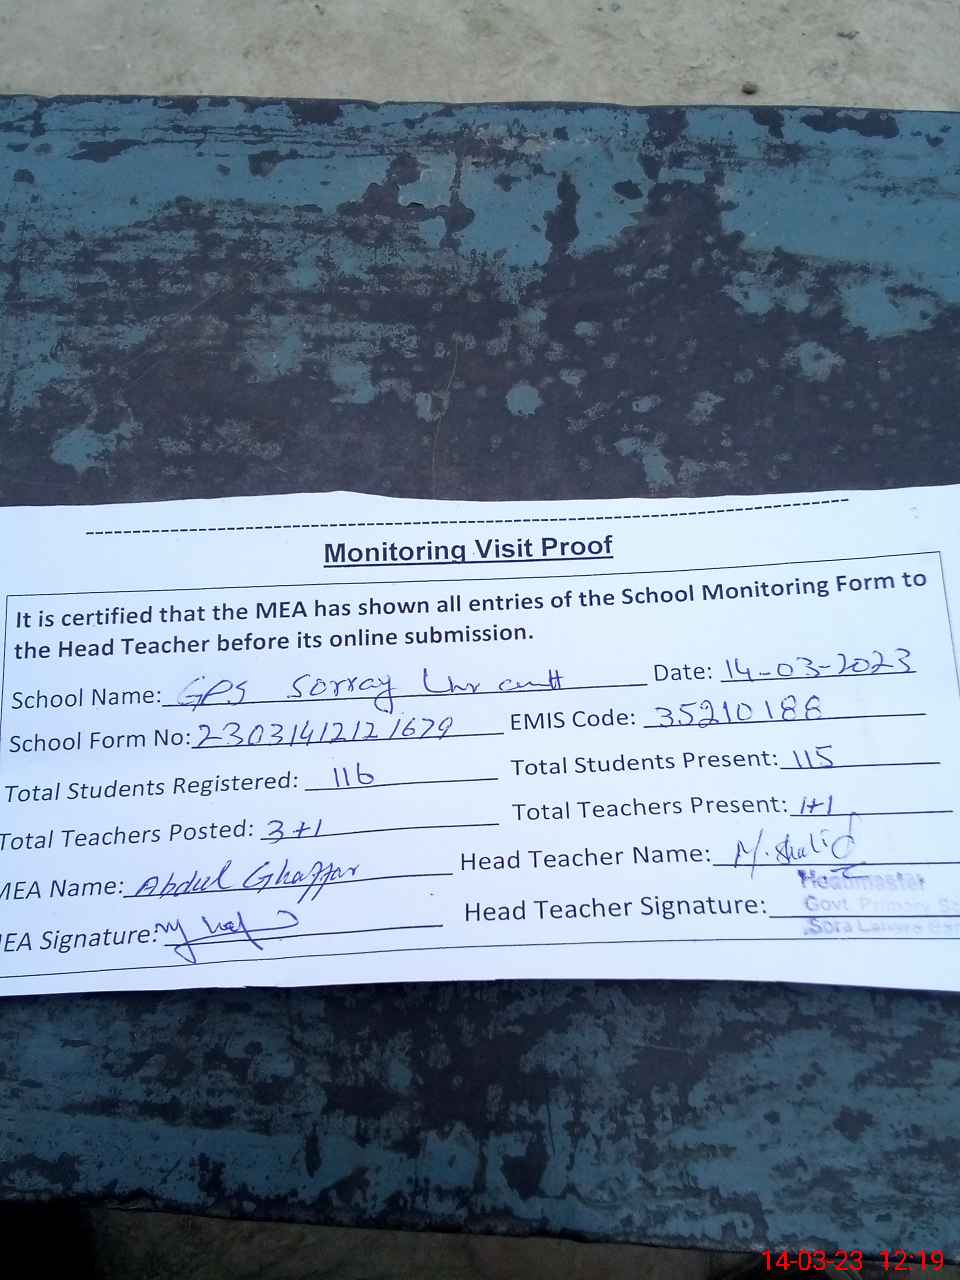 Monitoring Visit Proof
It is certified that the MEA has shown all entries of the School Monitoring Form to
the Head Teacher before its online submission.
School Name: GPS Sorray Lhr cantt Date: 14-03-2023
School Form No: 2303141212 1679 EMIS Code: 35210188
Total Students Registered: 116 Total Students Present: 115
Total Teachers Posted: 3+1 Total Teachers Present: 1+1
MEA Name: Abdul Ghaffar Head Teacher Name: M.
EA Signature: Head Teacher Signature:
Headmaster
Govt Primary
14-03-23 12:19